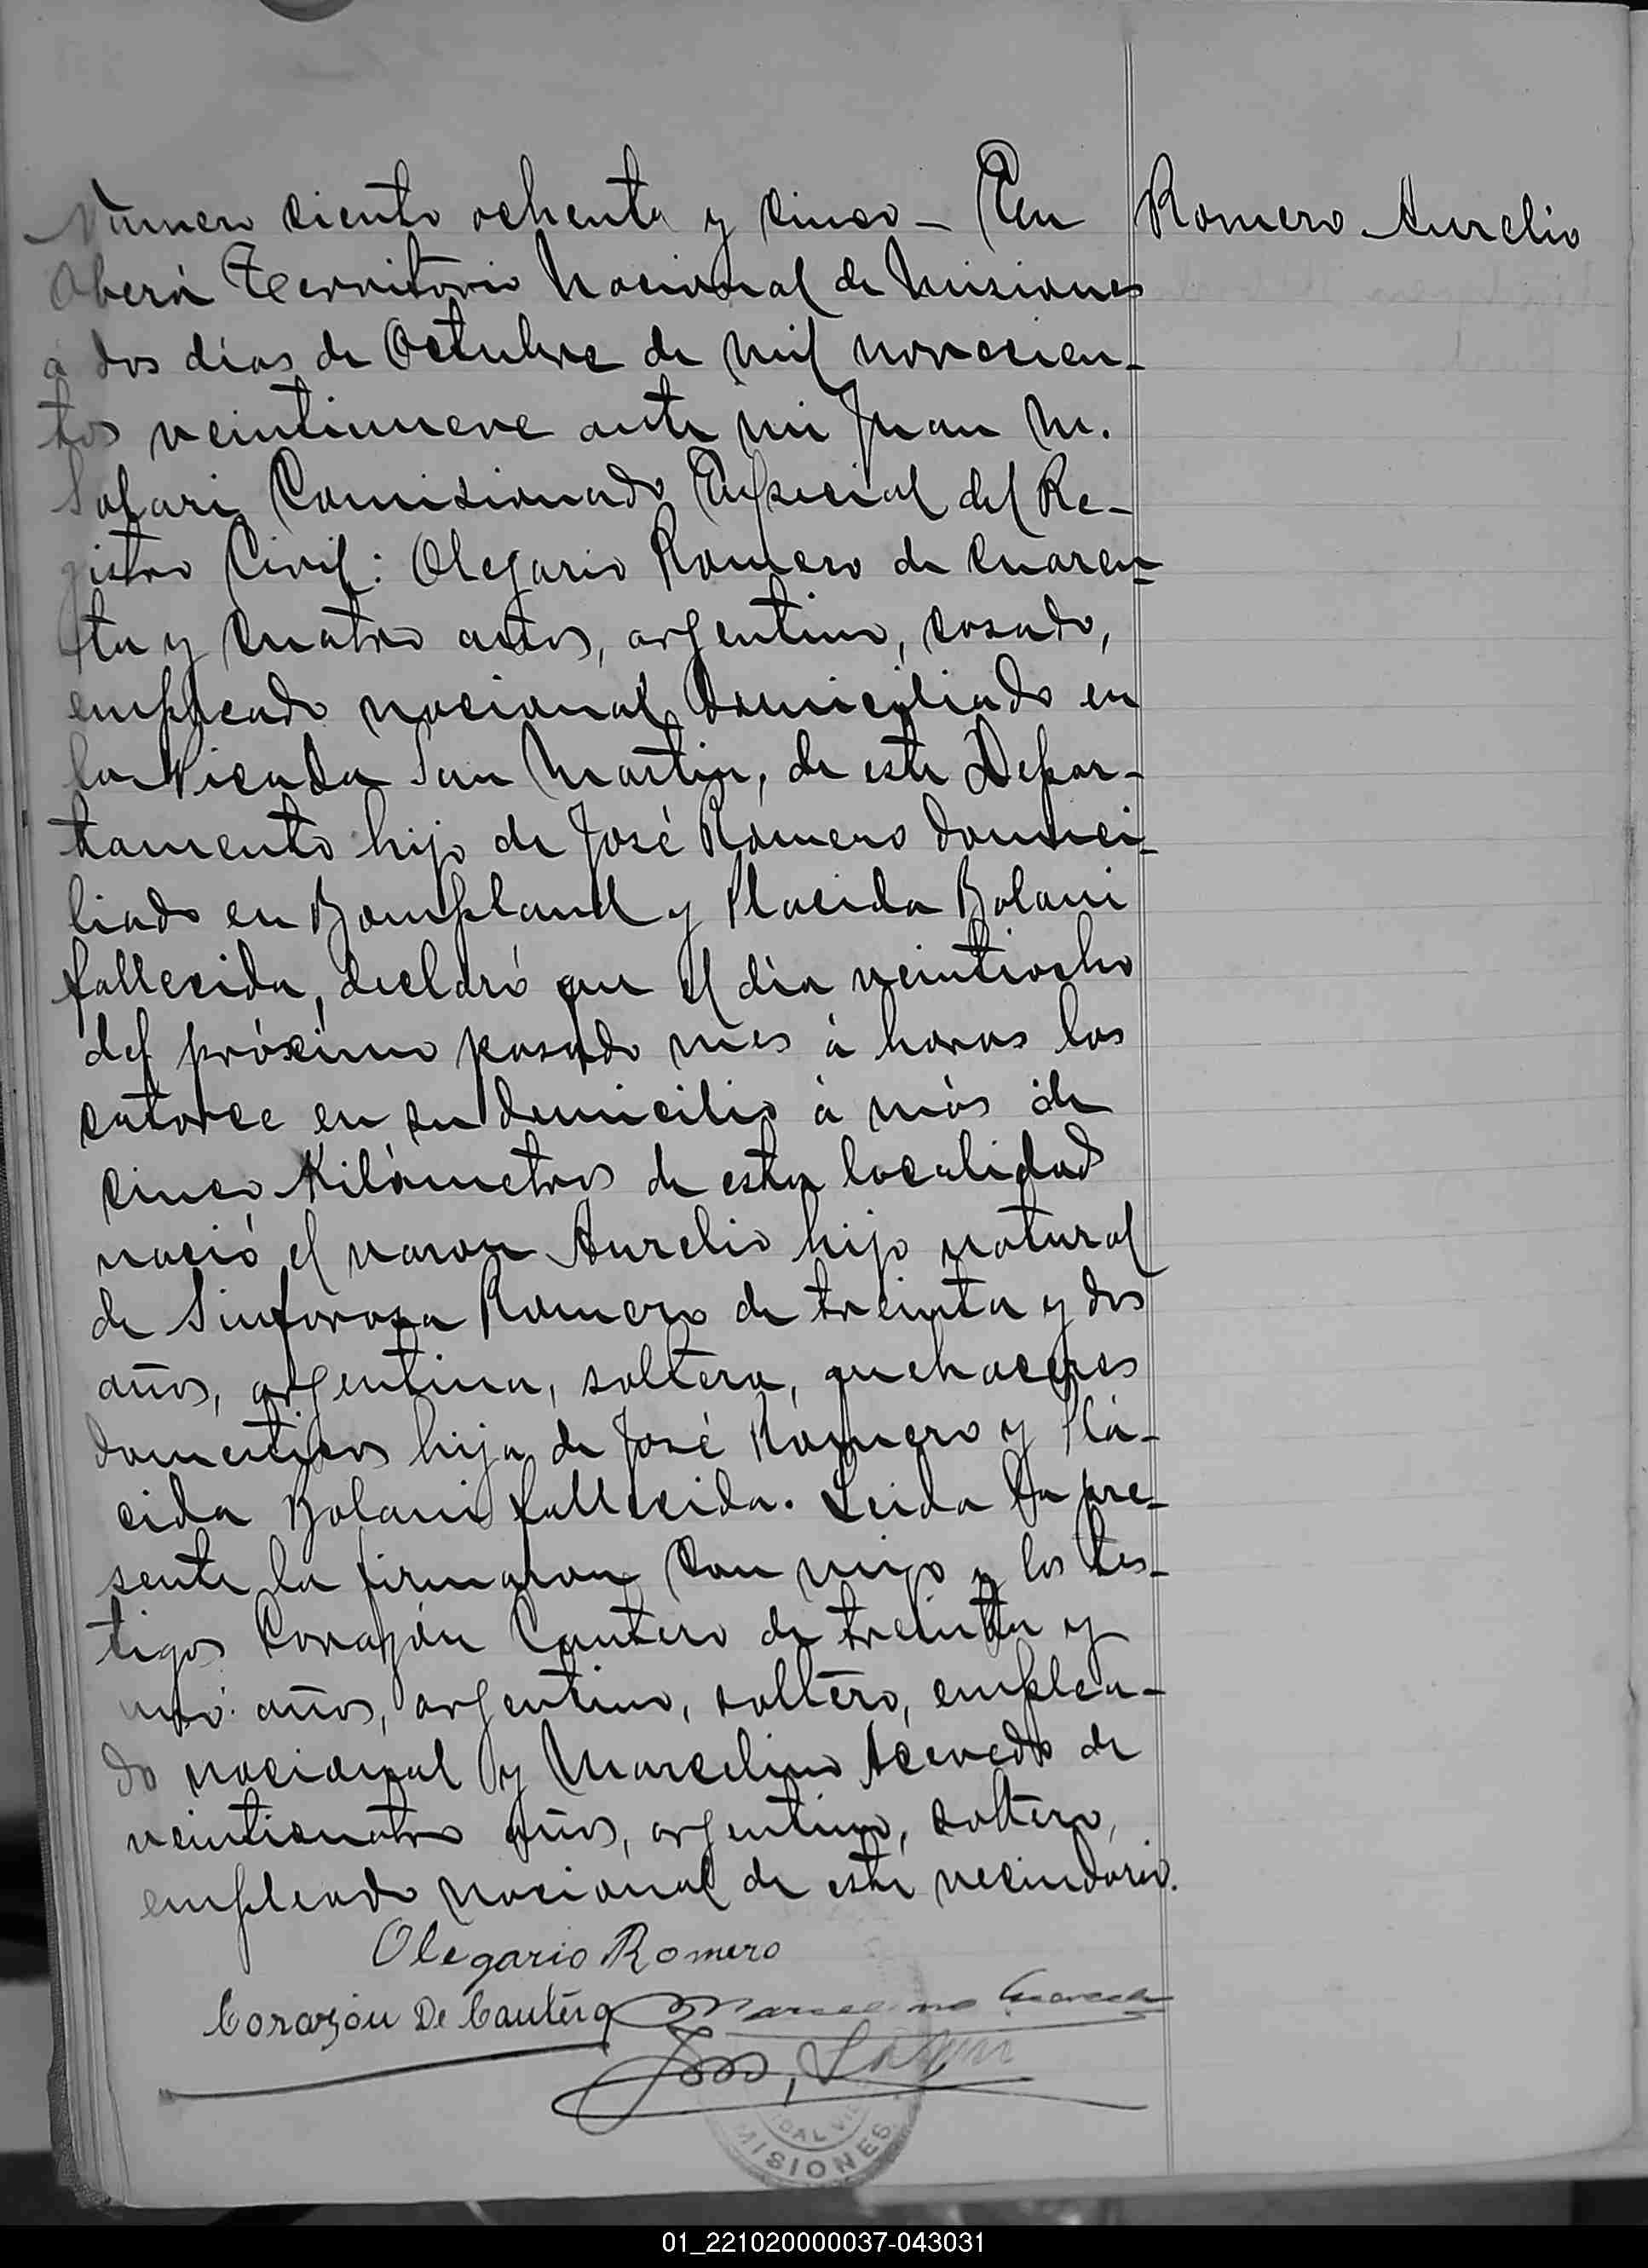 Número ciento ochenta y cinco – En
Romero Aurelio
Oberá Territorio Nacional de Misiones
á dos días de Octubre de mil novecien-
tos veintinueve ante mi Juan M.
Solari Comisionado Especial del Re-
gistro Civil: Olegario Romero de cuaren-
ta y cuatro años, argentino, casado,
empleado nacional domiciliado en
la Picada San Martin, de este Depar-
tamento hijo de José Romero domici-
liado en Bompland y Placida Bolani
fallecida, declaró que el día veintiocho
del próximo pasado mes á horas las
catorce en su domicilio á más de
cinco Kilómetros de esta localidad
nació el varon Aurelio hijo natural
de Sinforosa Romero de treinta y dos
años, argentina, soltera, quehaceres
domesticos hija de José Romero y Plá-
cida Bolani fallecida. Leida la pre-
sente la firmaron con migo y los tes-
tigos Corazón Cantero de treinta y
años, argentino, soltero, emplea-
do nacional y Marcelino Acevedo de
veinticuatro años, argentino, soltero,
empleado nacional de este vecindario.
Olegario Romero
Corazón De Cantero
Marcelino Acevedo
MISIONES
01_221020000037-043031